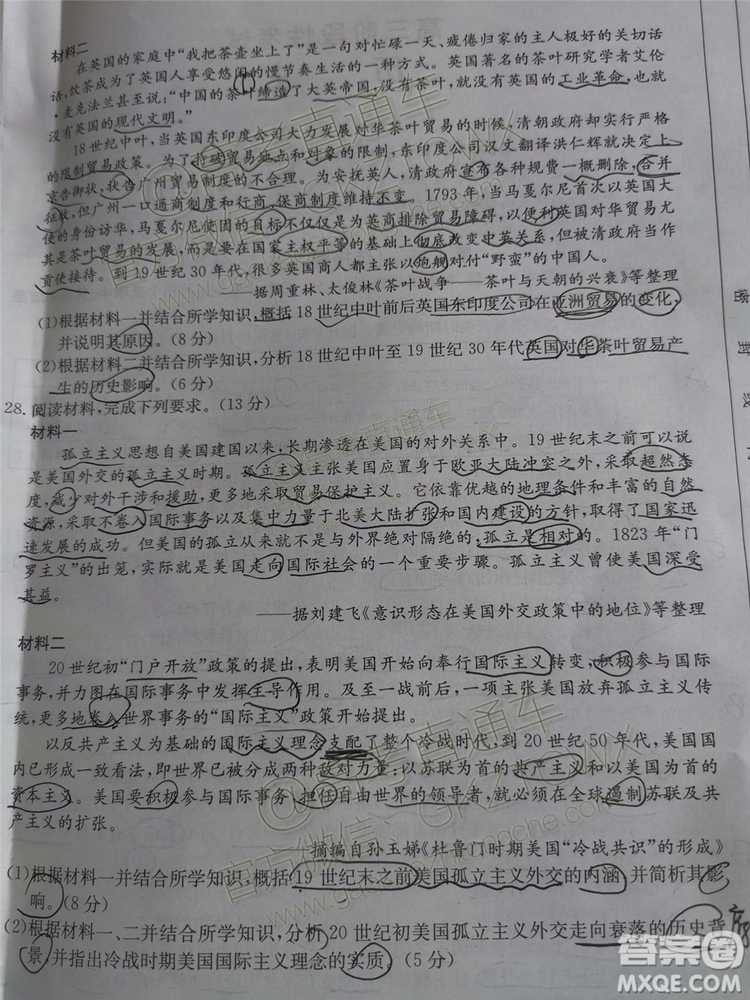 材料二
在英国的家庭中“我把茶壶坐上了”是一句对忙碌一天、疲倦归家的主人极好的关切话
语,饮茶成为了英国人享受悠闲的慢节奏生活的一种方式。英国著名的茶叶研究学者艾伦
·麦克法兰甚至说:“中国的茶叶缔造了大英帝国,没有茶叶,就没有英国的工业革命,也就
没有英国的现代文明。”
18世纪中叶,当英国东印度公司大力发展对华茶叶贸易的时候,清朝政府却实行严格
的限制贸易政策。为了打破贸易据点和对象的限制,东印度公司汉文翻译洪仁辉就决定上
京告御状,状告广州贸易制度的不合理。为安抚英人,清政府宣布各种规费一概删除,合并
征收,但广州一口通商制度和行商、保商制度维持不变。1793年,当马戛尔尼首次以英国大
使的身份访华,马戛尔尼使团的目标不仅仅是为英商排除贸易障碍,以便利英国对华贸易尤
其是茶叶贸易的发展,而是要在国家主权平等的基础上彻底改变中英关系,但被清政府当作
贡使接待。到19世纪30年代,很多英国商人都主张以炮舰对付“野蛮”的中国人。
——据周重林、太俊林《茶叶战争——茶叶与天朝的兴衰》等整理
(1)根据材料一并结合所学知识,概括18世纪中叶前后英国东印度公司在亚洲贸易的变化,
并说明其原因。(8分)
(2)根据材料二并结合所学知识,分析18世纪中叶至19世纪30年代英国对华茶叶贸易产
生的历史影响。(6分)
28.阅读材料,完成下列要求。(13分)
材料一
孤立主义思想自美国建国以来,长期渗透在美国的对外关系中。19世纪末之前可以说
是美国外交的孤立主义时期。孤立主义主张美国应置身于欧亚大陆冲突之外,采取超然态
度,减少对外干涉和援助,更多地采取贸易保护主义。它依靠优越的地理条件和丰富的自然
资源,采取不卷入国际事务以及集中力量于北美大陆扩张和国内建设的方针,取得了国家迅
速发展的成功。但美国的孤立从来就不是与外界绝对隔绝的,孤立是相对的。1823年“门
罗主义”的出笼,实际就是美国走向国际社会的一个重要步骤。孤立主义曾使美国深受
其益。
——据刘建飞《意识形态在美国外交政策中的地位》等整理
材料二
20世纪初“门户开放”政策的提出,表明美国开始向奉行国际主义转变,积极参与国际
事务,并力图在国际事务中发挥主导作用。及至一战前后,一项主张美国放弃孤立主义政策,
更多地卷入世界事务的“国际主义”政策开始提出。
以反共产主义为基础的国际主义理念支配了整个冷战时代,到20世纪50年代,美国国
内已形成一致看法,即世界已被分成两种敌对力量:以苏联为首的共产主义和以美国为首的
资本主义。美国要积极参与国际事务,担任自由世界的领导者,就必须在全球遏制苏联及共
产主义的扩张。
——摘编自孙玉娣《杜鲁门时期美国“冷战共识”的形成》
(1)根据材料一并结合所学知识,概括19世纪末之前美国孤立主义外交的内涵,并简析其影
响。(8分)
(2)根据材料一、二并结合所学知识,分析20世纪初美国孤立主义外交走向衰落的历史背
景,并指出冷战时期美国国际主义理念的实质。(5分)
密
封
线
答案圈
MXQE.COM